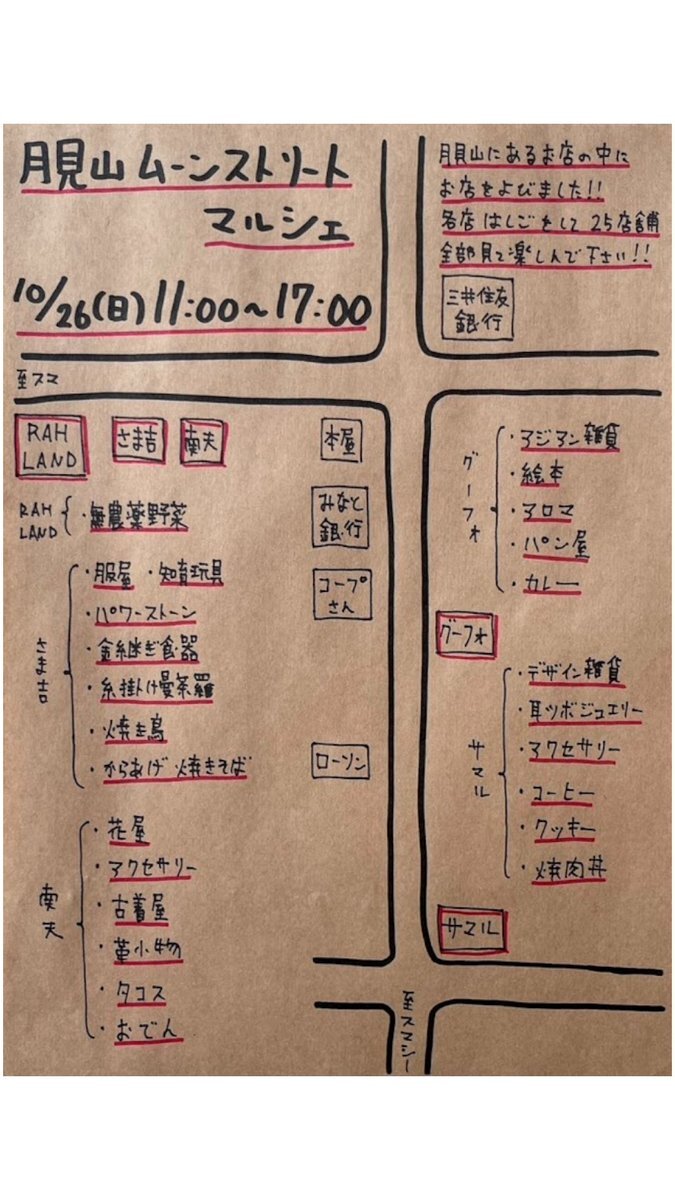 月見山 ムーンストリート
マルシェ
10/26(日) 11:00〜17:00
月見山にあるお店の中に
お店をよびました!!
各店 はしごをして 25店舗
全部見て楽しんで下さい!!
三井住友
銀行
至スマ
RAH
LAND
さま吉
南夫
本屋
RAH
LAND
・無農薬野菜
みなと
銀行
コープ
さん
さま吉
・服屋 ・知育玩具
・パワーストーン
・金継ぎ食器
・糸掛け曼荼羅
・焼き鳥
・からあげ 焼きそば
ローソン
南夫
・花屋
・アクセサリー
・古着屋
・革小物
・タコス
・おでん
グーフォ
・アジアン雑貨
・絵本
・アロマ
・パン屋
・カレー
グーフォ
サマル
・デザイン雑貨
・耳ツボジュエリー
・アクセサリー
・コーヒー
・クッキー
・焼肉丼
サマル
至スマシー